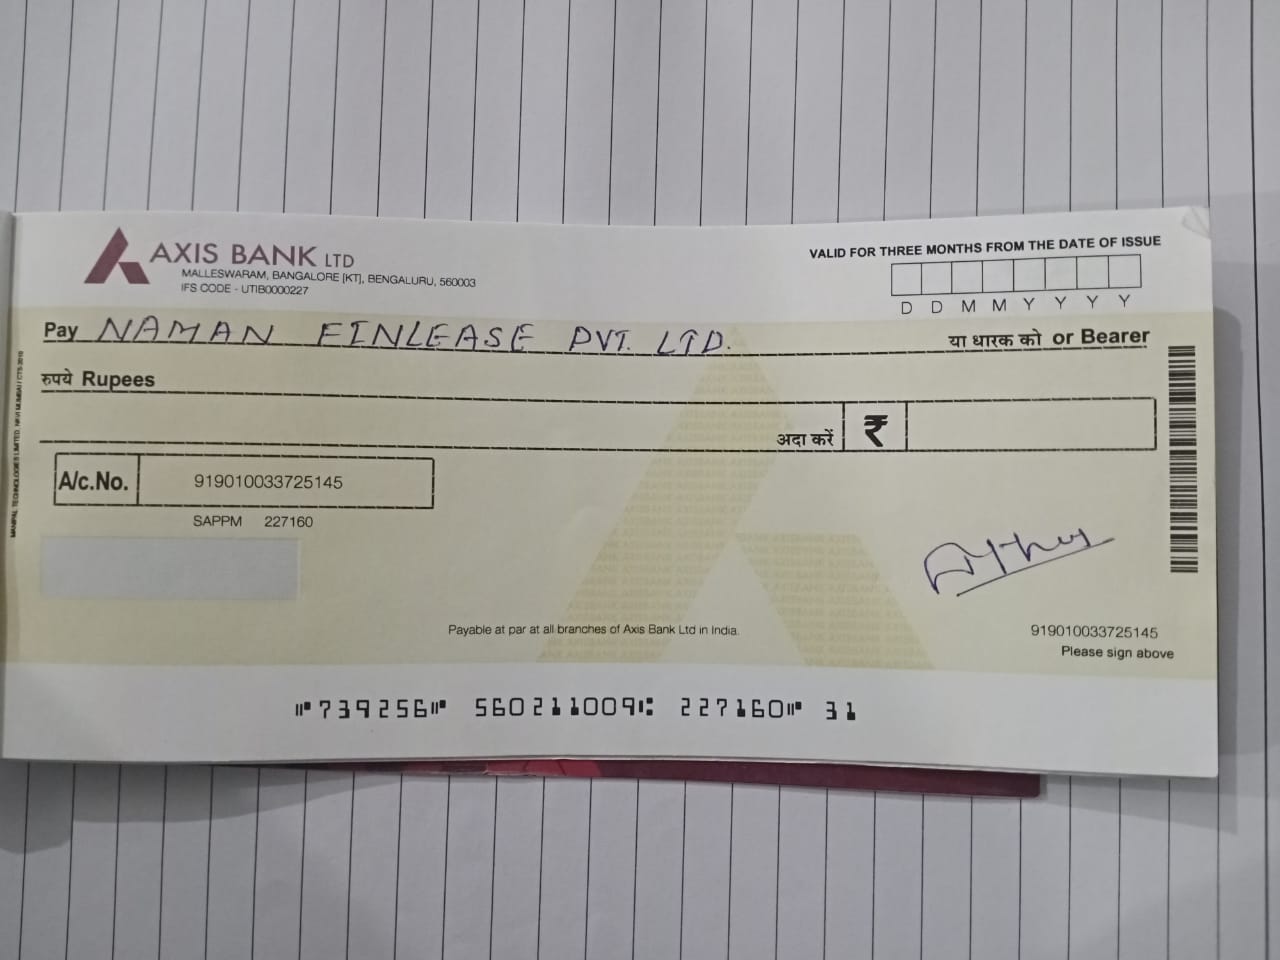 AXIS BANK LTD
MALLESWARAM, BANGALORE [KT], BENGALURU, 560003
IFS CODE - UTIB0000227
VALID FOR THREE MONTHS FROM THE DATE OF ISSUE
D D M M Y Y Y Y
Pay NAMAN FINLEASE PVT. LTD. या धारक को or Bearer
रुपये Rupees
अदा करें ₹
A/c.No. 919010033725145
SAPPM 227160
Payable at par at all branches of Axis Bank Ltd in India.
919010033725145
Please sign above
⑈739256⑈ 560211009⑆ 227160⑈ 31
MANIPAL TECHNOLOGIES LIMITED, NAVI MUMBAI / CTS-2010